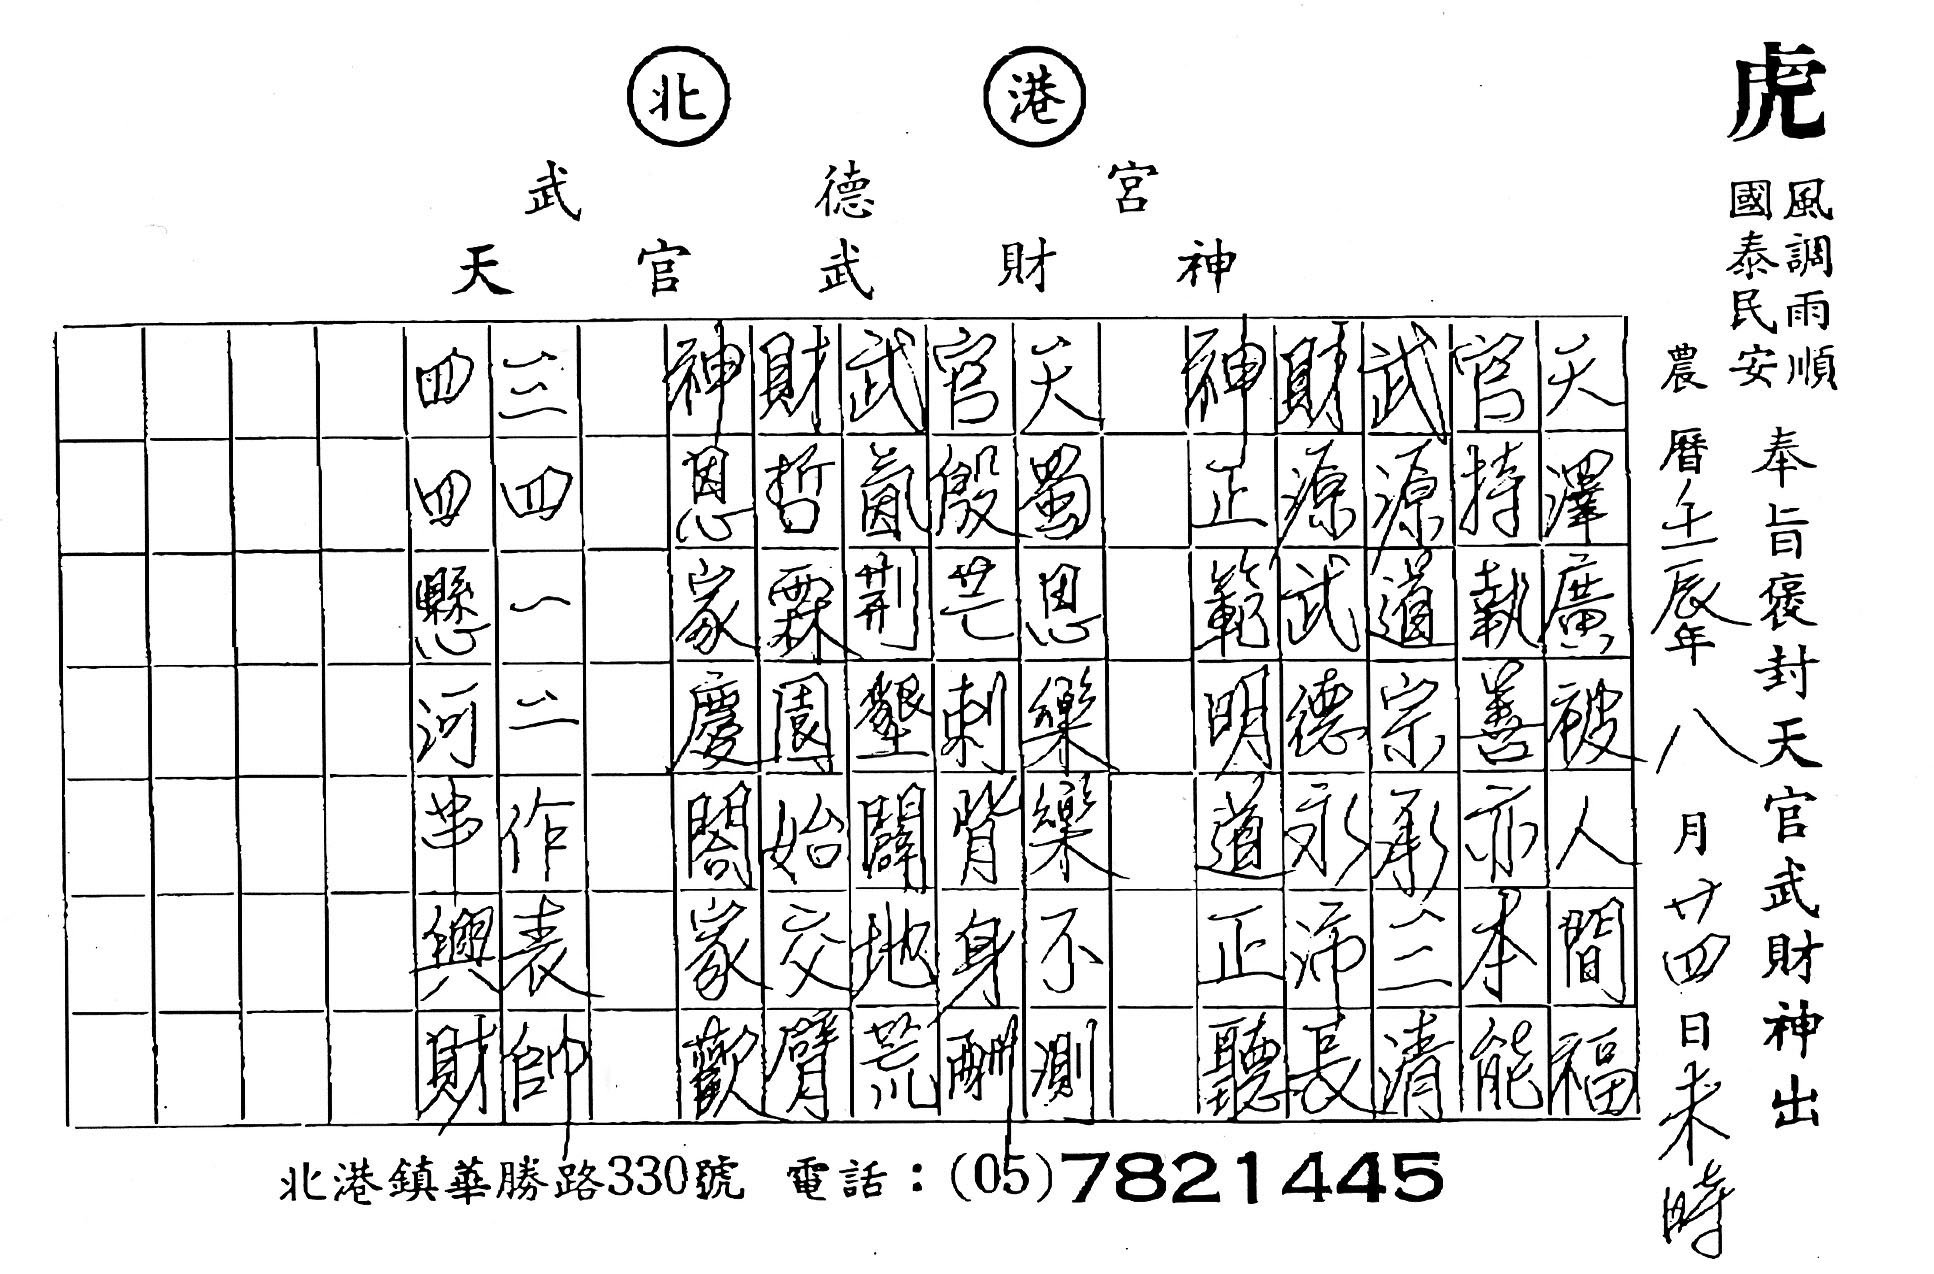 虎
風調雨順
國泰民安
奉旨褒封天官武財神出
農曆壬辰年八月廿四日未時
北港
武德宮
天官武財神
天澤廣被人間福
官持執善亦本能
武源道宗承三清
財源武德永沛長
神正範明道正聽
天蜀思樂樂不測
官殷芒刺背身酬
武氤荆墾闢地荒
財哲霖園始交臂
神恩家慶閤家歡
三四一二作表帥
四四懸河串興財
北港鎮華勝路330號 電話：(05)7821445